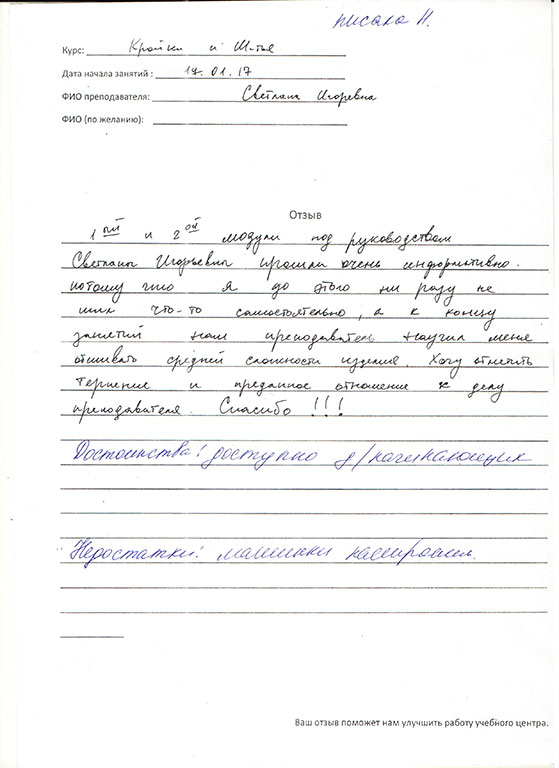 писала Н.
Курс: Кройки и Шитья
Дата начала занятий : 17.01.17
ФИО преподавателя: Светлана Игоревна
ФИО (по желанию):
Отзыв
1ый и 2ой модули под руководством
Светланы Игорьевны прошли очень информативно.
потому что я до этого ни разу не
шил что-то самостоятельно, а к концу
занятий наш преподаватель научил меня
отшивать средней сложности изделия. Хочу отметить
терпение и преданное отношение к делу
преподавателя. Спасибо !!!
Достоинства: доступно д/начинающих
Недостатки: машинки
Ваш отзыв поможет нам улучшить работу учебного центра.